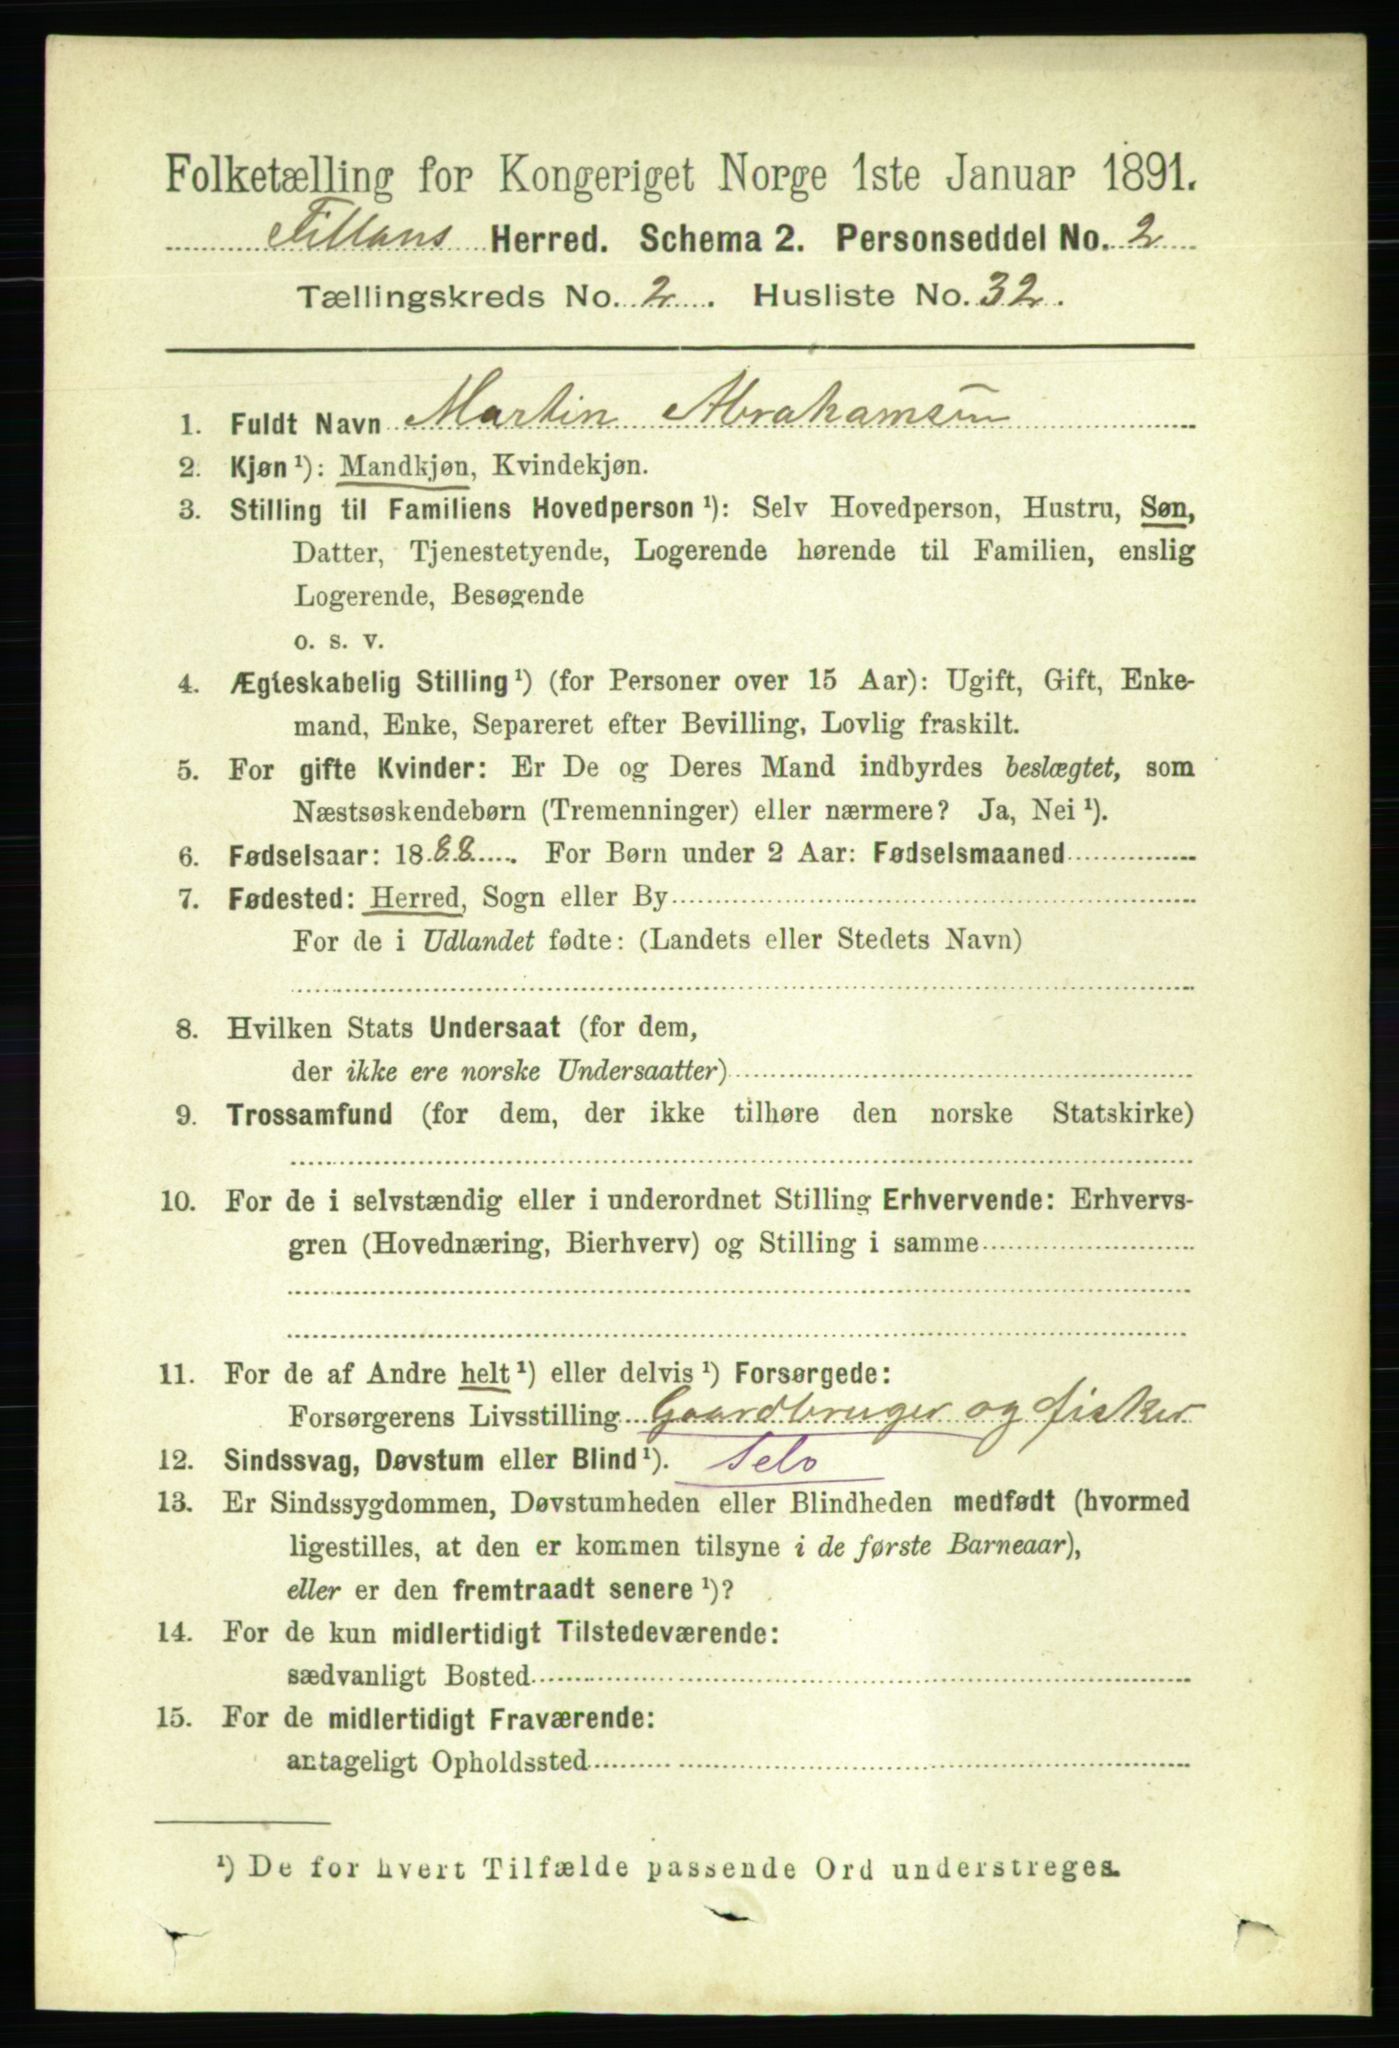 Folketælling for Kongeriget Norge 1ste Januar 1891.
Fillans Herred. Schema 2. Personseddel No. 2
Tællingskreds No. 2. Husliste No. 32.
1. Fuldt Navn Martin Abrahamsen
2. Kjøn ¹): Mandkjøn, Kvindekjøn.
3. Stilling til Familiens Hovedperson ¹): Selv Hovedperson, Hustru, Søn,
Datter, Tjenestetyende, Logerende hørende til Familien, enslig
Logerende, Besøgende
o. s. v.
4. Ægteskabelig Stilling ¹) (for Personer over 15 Aar): Ugift, Gift, Enke-
mand, Enke, Separeret efter Bevilling, Lovlig fraskilt.
5. For gifte Kvinder: Er De og Deres Mand indbyrdes beslægtet, som
Næstsøskendebørn (Tremenninger) eller nærmere? Ja, Nei ¹).
6. Fødselsaar: 1888. For Børn under 2 Aar: Fødselsmaaned
7. Fødested: Herred, Sogn eller By
For de i Udlandet fødte: (Landets eller Stedets Navn)
8. Hvilken Stats Undersaat (for dem,
der ikke ere norske Undersaatter)
9. Trossamfund (for dem, der ikke tilhøre den norske Statskirke)
10. For de i selvstændig eller i underordnet Stilling Erhvervende: Erhvervs-
gren (Hovednæring, Bierhverv) og Stilling i samme
11. For de af Andre helt ¹) eller delvis ¹) Forsørgede:
Forsørgerens Livsstilling Gaardbruger og fisker
12. Sindssvag, Døvstum eller Blind ¹). Selv
13. Er Sindssygdommen, Døvstumheden eller Blindheden medfødt (hvormed
ligestilles, at den er kommen tilsyne i de første Barneaar),
eller er den fremtraadt senere ¹)?
14. For de kun midlertidigt Tilstedeværende:
sædvanligt Bosted
15. For de midlertidigt Fraværende:
antageligt Opholdssted
¹) De for hvert Tilfælde passende Ord understreges.